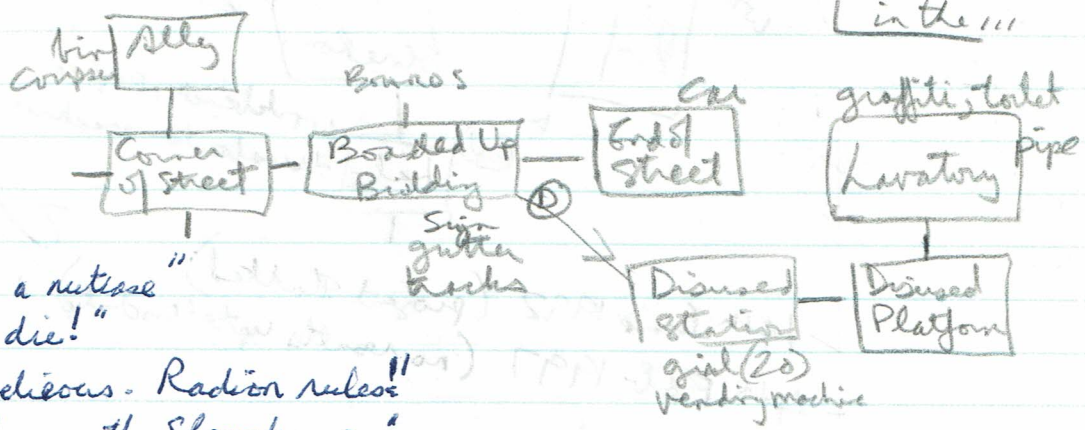 in the...
Alley
bin
Corpse
Boards
Car
graffiti, toilet
pipe
Corner
of Street
Boarded Up
Building
End of
Street
Lavatory
D
Sign
gutter
a nutcase"
die!"
Disused
Station
Disused
Platform
girl (20)
vending machine
Radion rules!"